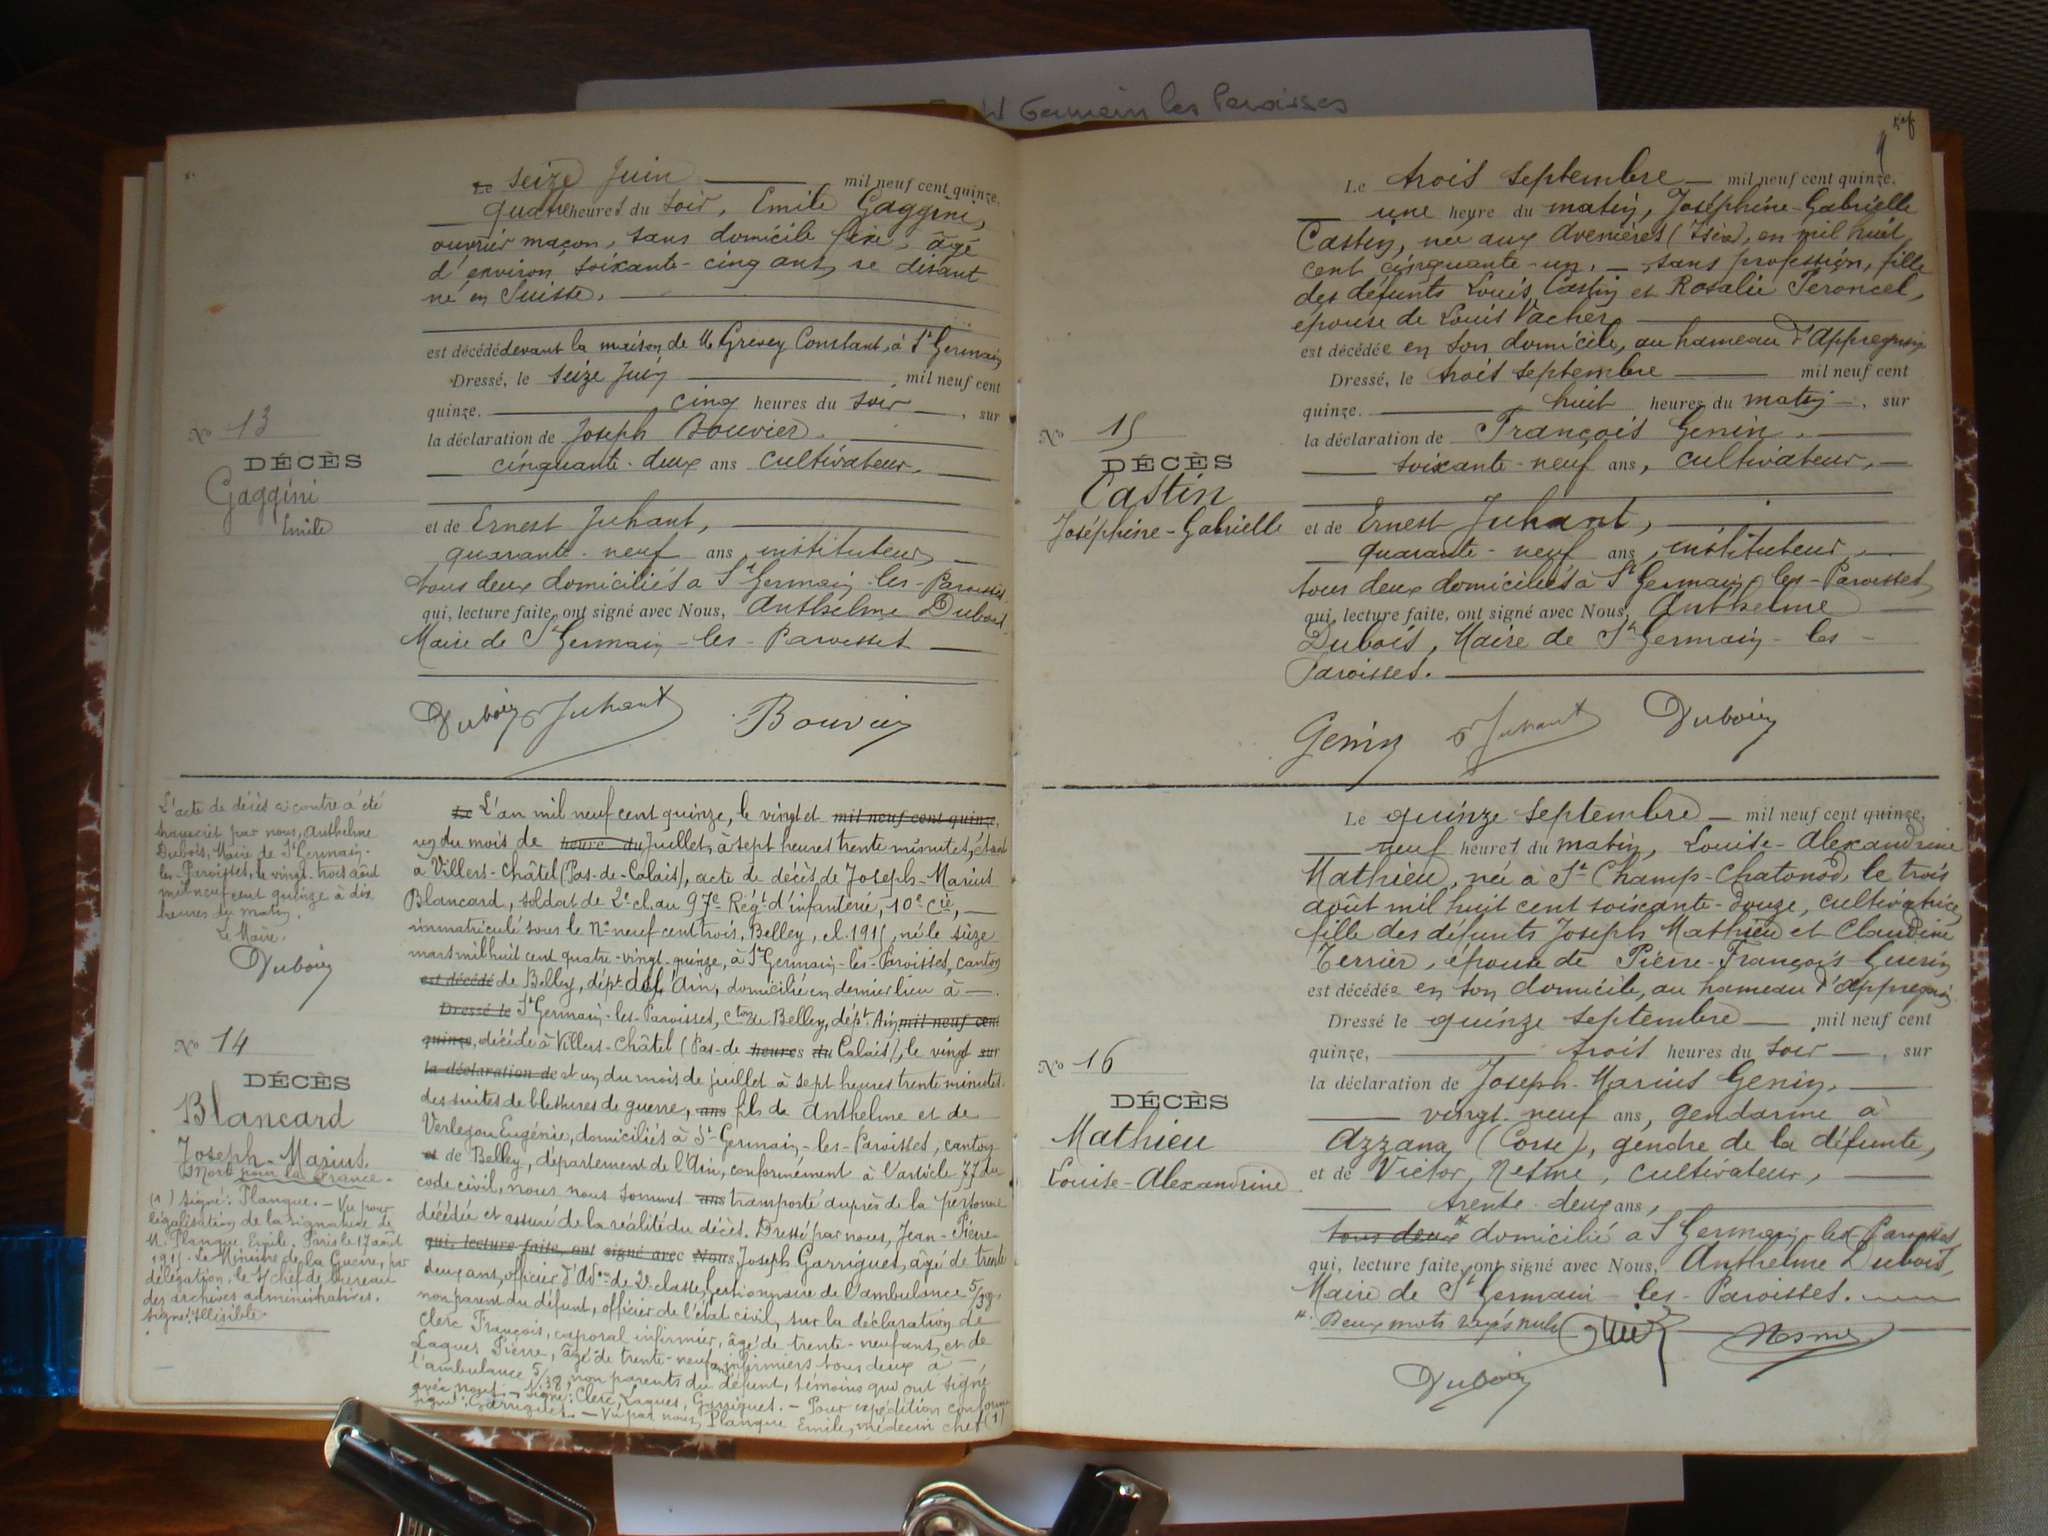 St Germain les Paroisses
Le seize Juin mil neuf cent quinze,
quatre heures du soir, Emile Gaggini,
ouvrier maçon, sans domicile fixe, âgé
d'environ soixante-cinq ans, se disant
né en Suisse.
est décédé devant la maison de M. Grevey Constant, à St Germain
Dressé, le seize Juin mil neuf cent
quinze. cinq heures du soir, sur
la déclaration de Joseph Bouvier.
cinquante-deux ans cultivateur,
No 13
DÉCÈS
Gaggini
Emile
et de Ernest Juhant,
quarante-neuf ans, instituteur
tous deux domiciliés à St Germain-les-Paroisses
qui, lecture faite, ont signé avec Nous, Anthelme Dubois
Maire de St Germain-les-Paroisses
Dubois Juhant Bouvier
L'acte de décès ci-contre a été
transcrit par nous, Anthelme
Dubois, Maire de St Germain-
les-Paroisses, le vingt-trois août
mil neuf cent quinze à dix
heures du matin.
Le Maire.
Dubois
No 14
DÉCÈS
Blancard
Joseph-Marius.
Mort pour la France.
(1) Signé: Planque. – Vu pour
légalisation de la signature de
M. Planque Emile. Paris le 17 août
1915. Le Ministre de la Guerre, par
délégation, le s/chef de bureau
des archives administratives.
signé: Illisible.
Le L'an mil neuf cent quinze, le vingt et mil neuf cent quinze,
un du mois de heure du Juillet, à sept heures trente minutes, étant
à Villers-Châtel (Pas-de-Calais), acte de décès de Joseph-Marius
Blancard, soldat de 2e cl. au 97e Régt d'infanterie, 10e Cie,
immatriculé sous le No neuf cent trois, Belley, cl. 1915, né le seize
mars mil huit cent quatre-vingt-quinze, à St Germain-les-Paroisses, canton
est décédé de Belley, dépt de l'Ain, domicilié en dernier lieu à
Dressé le St Germain-les-Paroisses, cton de Belley, dépt Ain mil neuf cent
quinze, décédé à Villers-Châtel (Pas-de heures du Calais), le vingt sur
la déclaration de et un du mois de juillet à sept heures trente minutes
des suites de blessures de guerre, ans fils de Anthelme et de
Verlegou Eugénie, domiciliés à St Germain-les-Paroisses, canton
et de Belley, département de l'Ain, conformément à l'article 77 du
code civil, nous nous sommes ans transporté auprès de la personne
décédée et assuré de la réalité du décès. Dressé par nous, Jean-Pierre
qui, lecture faite, ont signé avec Nous, Joseph Garrigues, âgé de trente
deux ans, officier d'Adon de 2e classe, gestionnaire de l'ambulance 5/38,
non parent du défunt, officier de l'état civil, sur la déclaration de
Clerc François, caporal infirmier, âgé de trente-neuf ans, et de
Laques Pierre, âgé de trente-neuf ans, infirmiers tous deux à
l'ambulance 5/38, non parents du défunt, témoins qui ont signé
avec nous. – Signé: Clerc, Laques, Garrigues. – Pour expédition conforme
signé: Garrigues. – Vu par nous, Planque Emile, médecin chef (1)
Le trois septembre mil neuf cent quinze.
une heure du matin, Joséphine-Gabrielle
Castin, née aux Avenières (Isère), en mil huit
cent cinquante-un, sans profession, fille
des défunts Louis Castin et Rosalie Peroncel,
épouse de Louis Vacher
est décédée en son domicile, au hameau d'Appregnin
Dressé, le trois septembre mil neuf cent
quinze. huit heures du matin, sur
la déclaration de François Genin,
soixante-neuf ans, cultivateur,
No 15
DÉCÈS
Castin
Joséphine-Gabrielle
et de Ernest Juhant,
quarante-neuf ans, instituteur,
tous deux domiciliés à St Germain-les-Paroisses
qui, lecture faite, ont signé avec Nous, Anthelme
Dubois, Maire de St Germain-les-
Paroisses.
Genin Juhant Dubois
Le quinze septembre mil neuf cent quinze,
neuf heures du matin, Louise-Alexandrine
Mathieu, née à St Champ-Chatonod, le trois
août mil huit cent soixante-douze, cultivatrice,
fille des défunts Joseph Mathieu et Claudine
Terrier, épouse de Pierre-François Guerin
est décédée en son domicile, au hameau d'Appregnin
Dressé le quinze septembre mil neuf cent
quinze, trois heures du soir, sur
la déclaration de Joseph-Marius Genin,
vingt-neuf ans, gendarme à
Azzana (Corse), gendre de la défunte,
No 16
DÉCÈS
Mathieu
Louise-Alexandrine
et de Victor Nesme, cultivateur,
trente-deux ans,
tous deux domicilié à St Germain-les-Paroisses
qui, lecture faite, ont signé avec Nous, Anthelme Dubois,
Maire de St Germain-les-Paroisses.
Deux mots rayés nuls
Nesme
Dubois